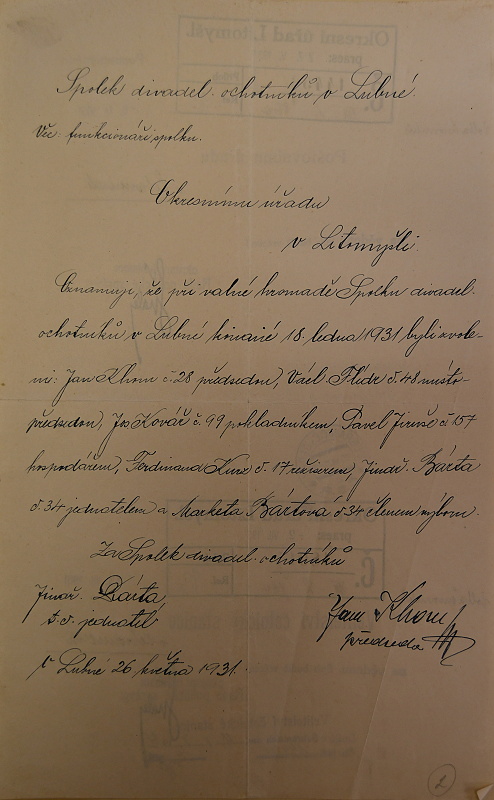 Spolek divadel. ochotníků v Lubné.
Věc: funkcionáři spolku.
Okresnímu úřadu
v Litomyšli.
Oznamuji, že při valné hromadě Spolku divadel.
ochotníků v Lubné konané 18. ledna 1931 byli zvole-
ni: Jan Khom č. 28 předsedou, Václ. Flídr č. 48 místo-
předsedou, Jos Kovář č. 99 pokladníkem, Pavel Jiruše č 157
hospodářem, Ferdinand Kusz č. 17 režiserem, Jindř. Bárta
č. 34 jednatelem a Marketa Bártova č 34 členem výboru.
Za Spolek divadel. ochotníků
Jindř. Bárta,
t. č. jednatel
Jan Khom
předseda
V Lubné 26 května 1931.
2